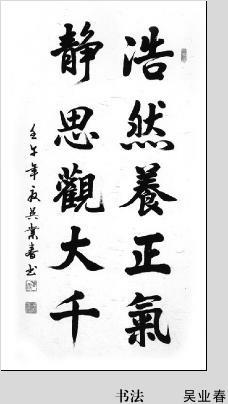 浩然養正氣
靜思觀大千
壬午年夜吴業春书
书法 吴业春